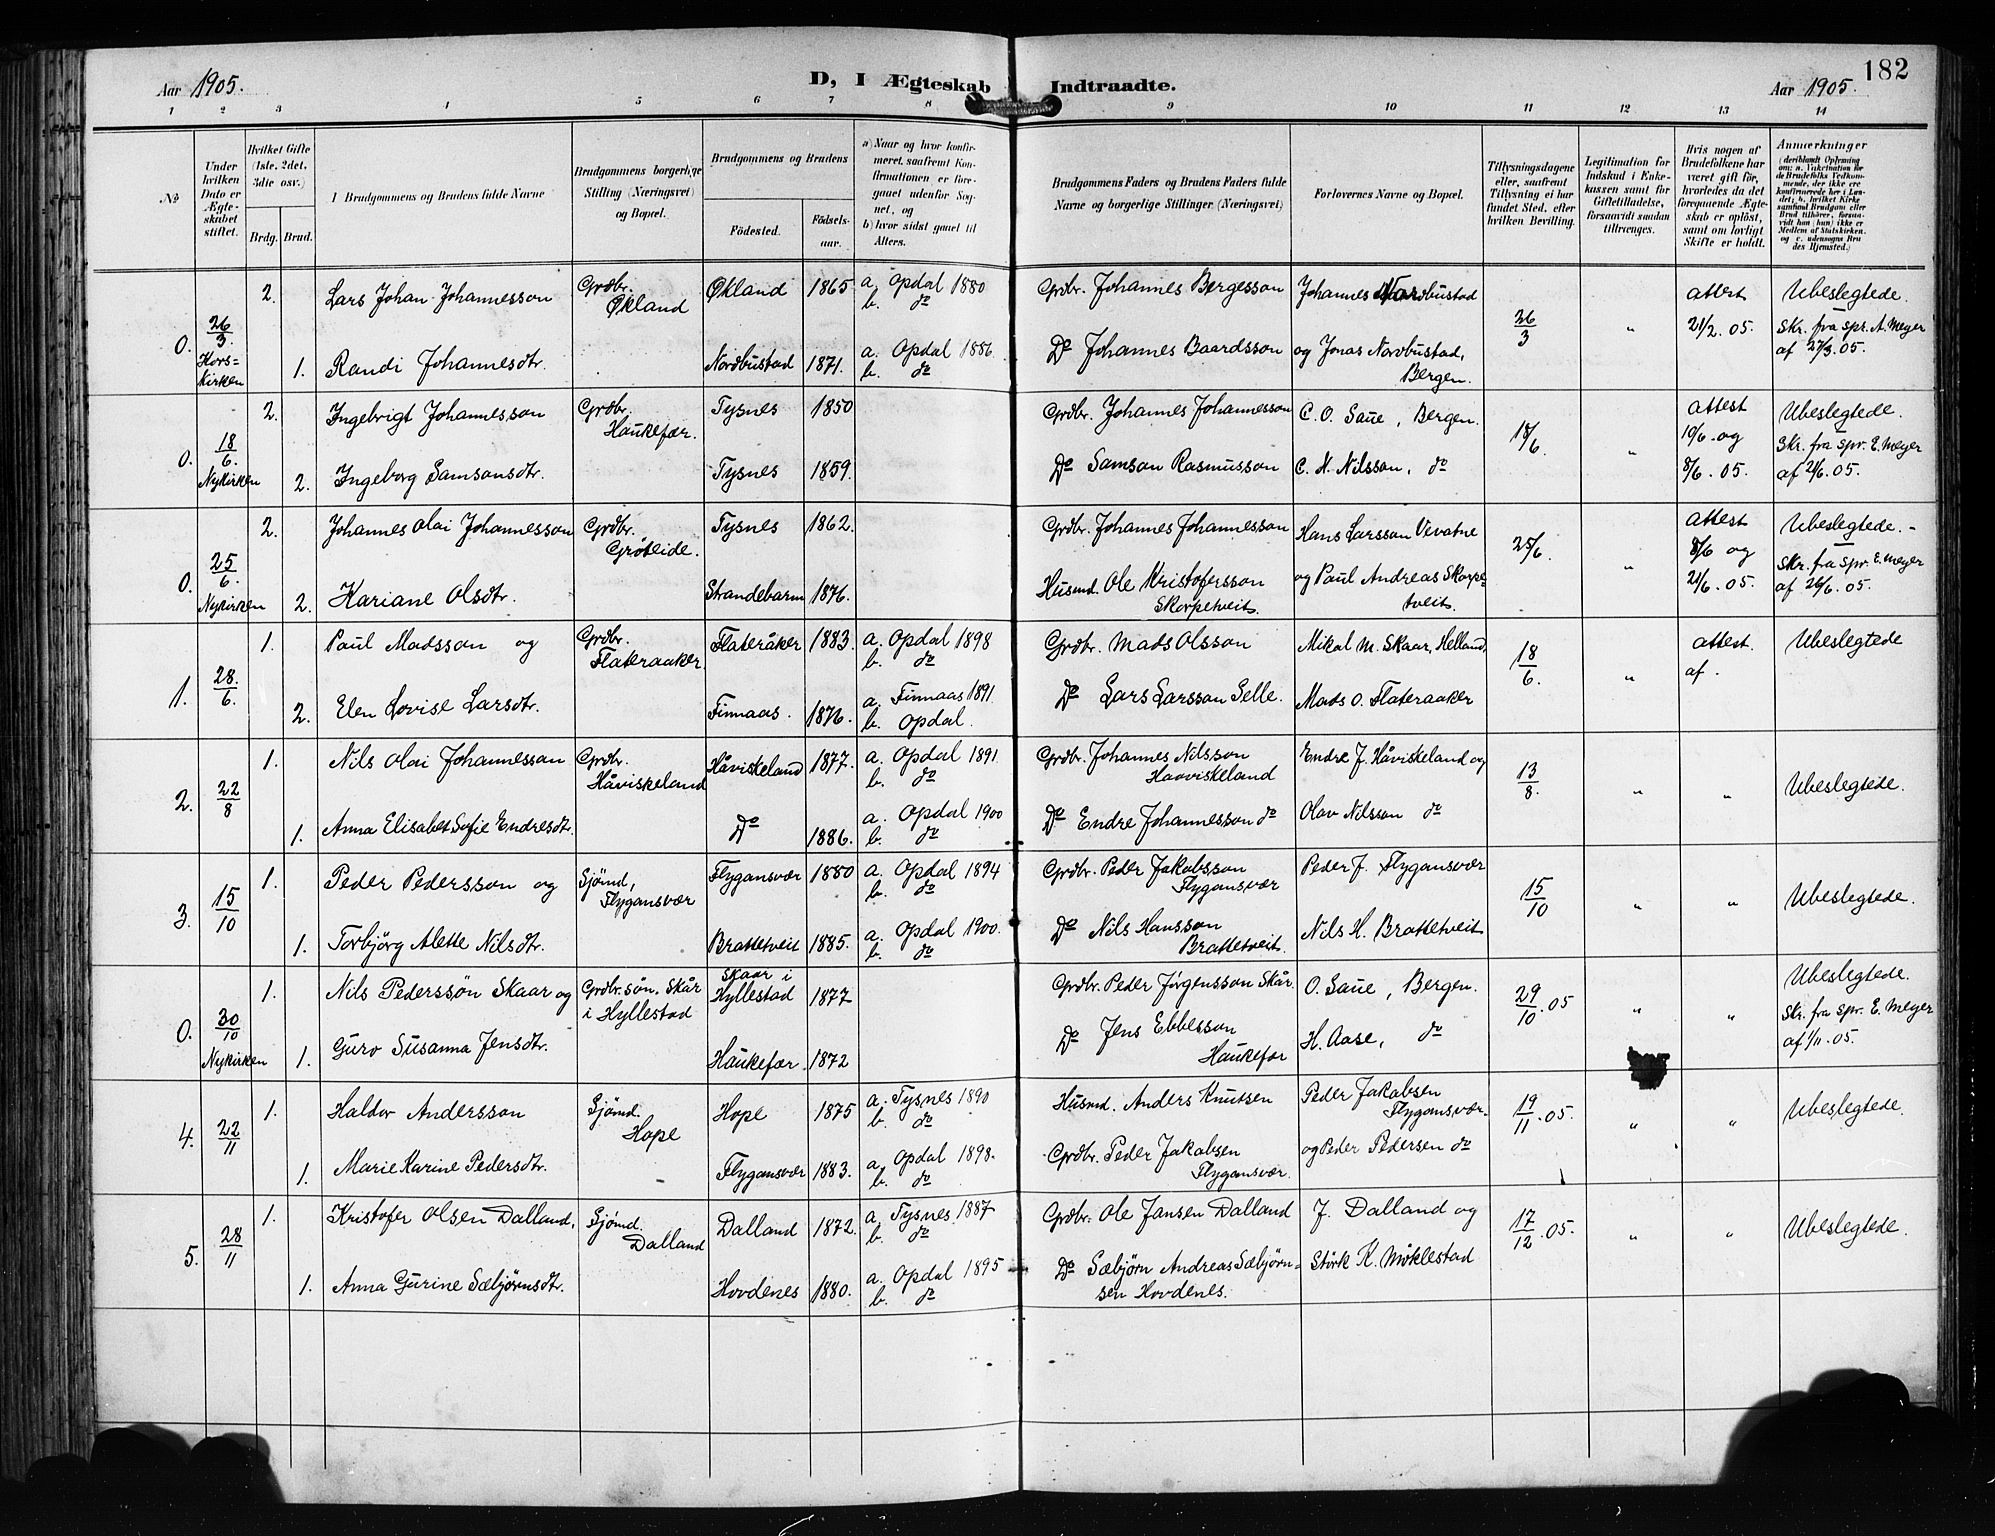 182
Aar 1905.
D, I Ægteskab Indtraadte.
Aar 1905.
1 2 3 4 5 6 7 8 9 10 11 12 13 14
No
Under hvilken Dato er Ægteskabet stiftet.
Hvilket Gifte (1ste, 2det, 3die osv.)
Brdg. Brud.
Brudgommens og Brudens fulde Navne
Brudgommens borgerlige Stilling (Næringsvei) og Bopæl.
Brudgommens og Brudens
Fødested.
Fødselsaar.
a) Naar og hvor konfirmeret, saafremt Konfirmationen er foregaaet udenfor Sognet, og
b) hvor sidst gaaet til Alters.
Brudgommens Faders og Brudens Faders fulde Navne og borgerlige Stillinger (Næringsvei)
Forlovernes Navne og Bopæl.
Tillysningsdagene eller, saafremt Tillysning ei har fundet Sted, efter hvilken Bevilling.
Legitimation for Indskud i Enkekassen samt for Giftetilladelse, forsaavidt saadan tiltrænges.
Hvis nogen af Brudefolkene har været gift før, hvorledes da det foregaaende Ægteskab er opløst, samt om lovligt Skifte er holdt.
Anmærkninger
0. 26/3. Korskirken 2. Lars Johan Johannesson Grdbr. Økland Økland 1865 a. Opdal 1880 b. do Grdbr. Johannes Børgesson Johannes Nordbustad 26/3 " attest 21/2. 05. Ubeslegtede. Skr. fra spr. A. Meyer af 27/3. 05.
1. Randi Johannesdtr. Nordbustad 1871. a. Opdal 1886. b. do Do Johannes Baardsson og Jonas Nordbustad, Bergen.
0. 18/6. Nykirken 2. Ingebrigt Johannesson Grdbr. Haukefær. Tysnes 1850 Grdbr. Johannes Johannesson C. O. Saue, Bergen. 18/6. " attest 10/6. og 8/6. 05. Ubeslegtede. Skr. fra spr. E. Meyer af 21/6. 05.
2. Ingeborg Samsonsdtr. Tysnes 1859. Do Samson Rasmusson C. N. Nilsson, do
0. 25/6. Nykirken 2. Johannes Olai Johannesson Grdbr. Grøteide. Tysnes 1862. Grdbr. Johannes Johannesson Hans Larsson Vevatne 25/6. " attest 8/6 og 21/6. 05. Ubeslegtede. - Skr. fra spr. E. Meyer af 26/6. 05.
2. Kariane Olsdtr. Strandebarm 1876. Husmd. Ole Kristofersson Skorpetveit. og Paul Andreas Skorpetveit.
1. 28./6. 1. Paul Madsson og Grdbr. Flateraaker Flateråker 1883. a. Opdal 1898 b. do Grdbr. Mads Olsson Mikal M. Skaar, Helland, 18/6. " attest. af. Ubeslegtede
2. Elen Lovise Larsdtr. Finnaas. 1876. a. Finnaas 1891 b. Opdal. Do Lars Larsson Selle. Mads O. Flateraaker
2. 22/8 1. Nils Olai Johannesson Grdbr. Håviskeland Håviskeland 1877. a. Opdal 1891. b. do Grdbr. Johannes Nilsson Haaviskeland Endre J. Håviskeland og 13/8. " " Ubeslegtede.
1. Anna Elisabet Sofie Endresdtr. Do 1886. a. Opdal 1900 b. do Do Endre Johannesson do Olav Nilsson do
3. 15/10 1. Peder Pedersson og Sjømd, Flygansvær Flygansvær 1880 a. Opdal 1894 b. do Grdbr. Peder Jakobsson Flygansvær Peder J. Flygansvær 15/10 " " Ubeslegtede.
1. Torbjörg Alette Nilsdtr. Brattetveit 1885. a. Opdal 1900. b. do Do Nils Hansson Brattetveit. Nils H. Brattetveit
0. 30/10 Nykirken 1. Nils Pedersson Skaar og Grdbr. søn. Skår i Hyllestad Skaar i Hyllestad 1877 Grdbr. Peder Jørgensson Skår. O. Saue, Bergen. 29/10. 05 " " Ubeslegtede. Skr. fra spr. E. Meyer af 1/11. 05.
1. Guro Susanna Jensdtr. Haukefær. 1872 Do Jens Ebbesson Haukefær H. Aase, do
4. 22/11 1. Haldor Andersson Sjømd. Hope Hope 1875 a. Tysnes 1890 b. do Husmd. Anders Knutsen Peder Jakobsen Flygansvær. 19/11. 05. " " Ubeslegtede.
1. Marie Karine Pedersdtr. Flygansvær 1883. a. Opdal 1898. b. do Grdbr. Peder Jakobsen Flygansvær. og Peder Pedersen do
5. 28/11 1. Kristofer Olsen Dalland, Sjømd. Dalland Dalland 1872. a. Tysnes 1887 b. do Grdbr. Ole Jansen Dalland J. Dalland og 17/12. 05. " " Ubeslegtede.
1. Anna Gurine Sæbjørnsdtr. Hovdenes 1880. a. Opdal 1895 b. do Do Sæbjørn Andreas Sæbjørnsen Hovdenes. Störk K. Møklestad